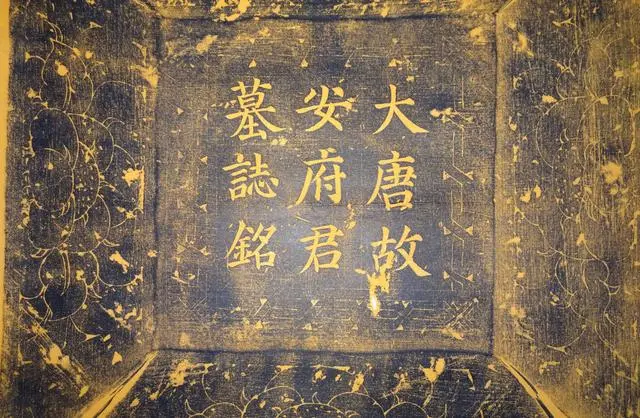 大唐故
安府君
墓誌銘